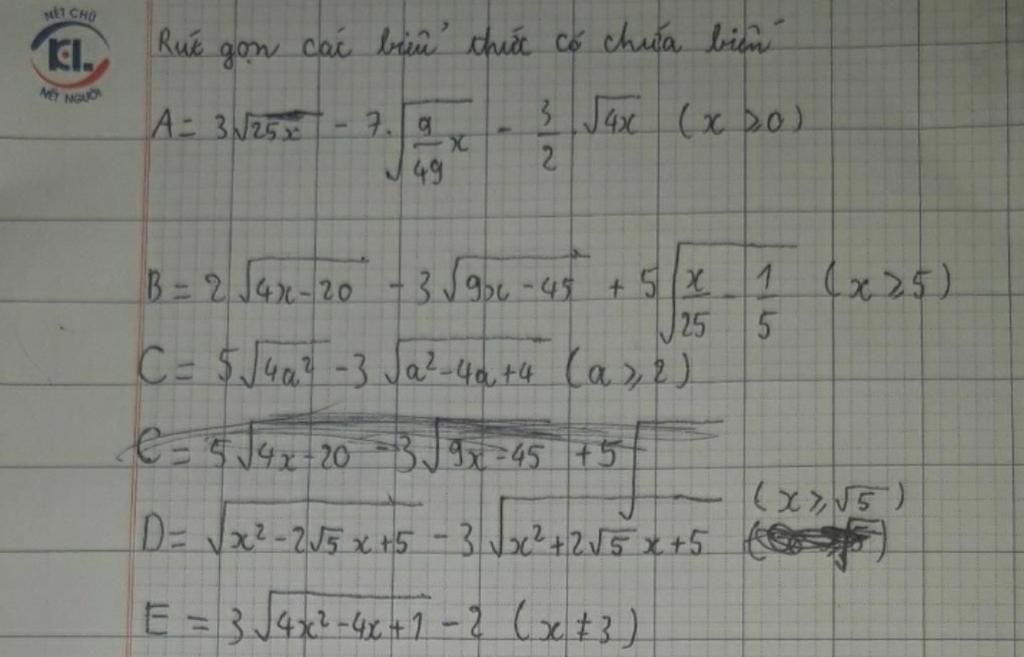 NÉT CHỮ
KL
NẾT NGƯỜI
Rút gọn các biểu thức có chứa biến
A = 3√25x - 7.√(9/49 x) - 3/2 .√4x (x ≥ 0)
B = 2√(4x-20) - 3√(9x-45) + 5√(x/25 - 1/5) (x ≥ 5)
C = 5√4a² - 3√(a²-4a+4) (a ≥ 2)
C = 5√(4x-20) - 3√(9x-45) + 5√
D = √(x²-2√5x+5) - 3√(x²+2√5x+5) (x ≥ √5)
E = 3√(4x²-4x+1) - 2 (x ≠ 3)